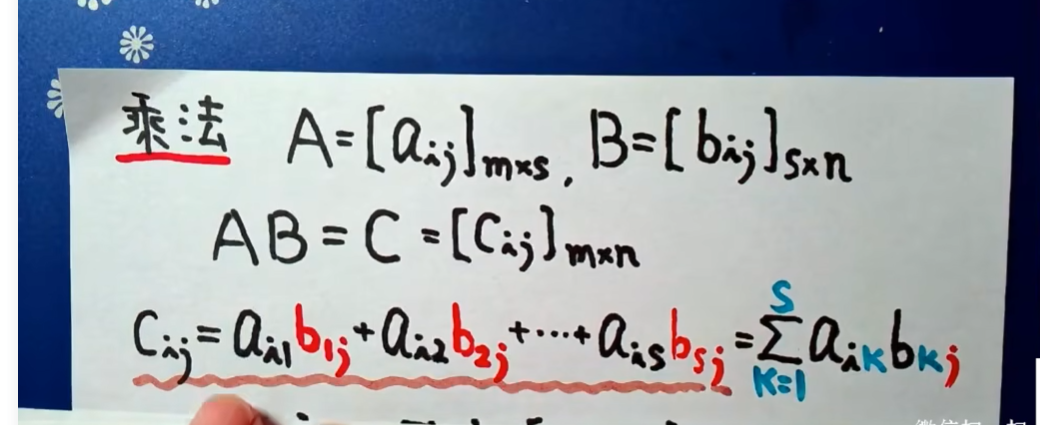 乘法 A=[aij]m×s, B=[bij]s×n
AB=C=[Cij]m×n
Cij=ai1b1j+ai2b2j+···+aisbsj=∑k=1s aikbkj